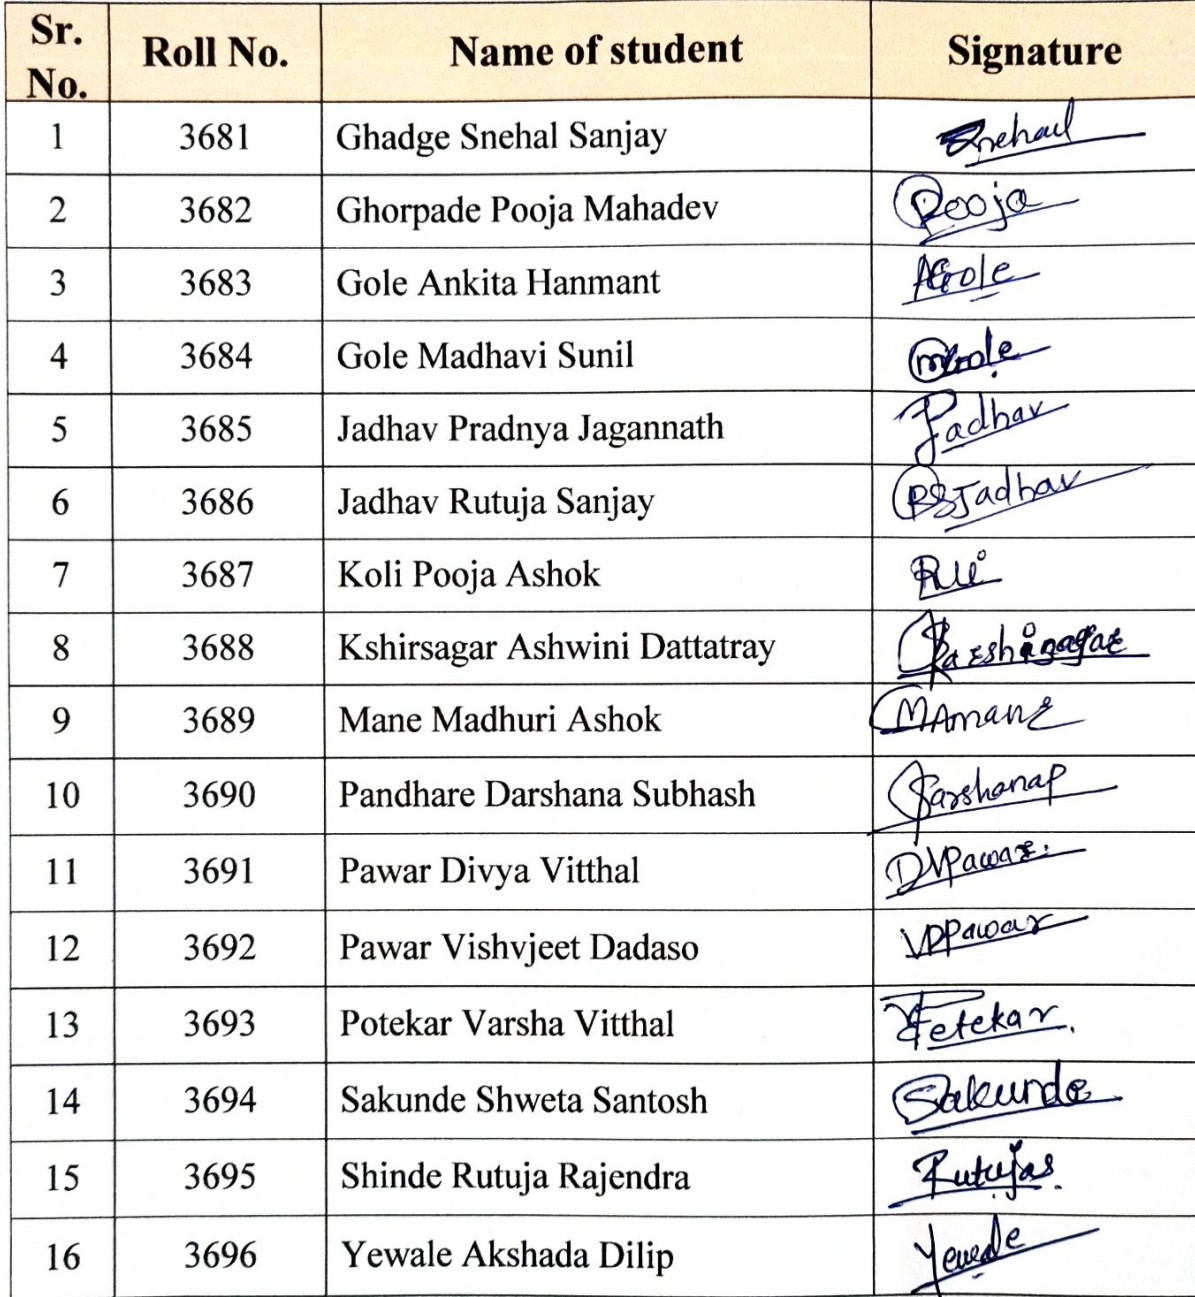 Sr. No. Roll No. Name of student Signature
1 3681 Ghadge Snehal Sanjay Snehal
2 3682 Ghorpade Pooja Mahadev Pooja
3 3683 Gole Ankita Hanmant AGole
4 3684 Gole Madhavi Sunil
5 3685 Jadhav Pradnya Jagannath Jadhav
6 3686 Jadhav Rutuja Sanjay RSJadhav
7 3687 Koli Pooja Ashok
8 3688 Kshirsagar Ashwini Dattatray
9 3689 Mane Madhuri Ashok MAmane
10 3690 Pandhare Darshana Subhash DarshanaP
11 3691 Pawar Divya Vitthal DVPawar.
12 3692 Pawar Vishvjeet Dadaso VDPawar
13 3693 Potekar Varsha Vitthal
14 3694 Sakunde Shweta Santosh Sakunde
15 3695 Shinde Rutuja Rajendra Rutujas.
16 3696 Yewale Akshada Dilip Yewale